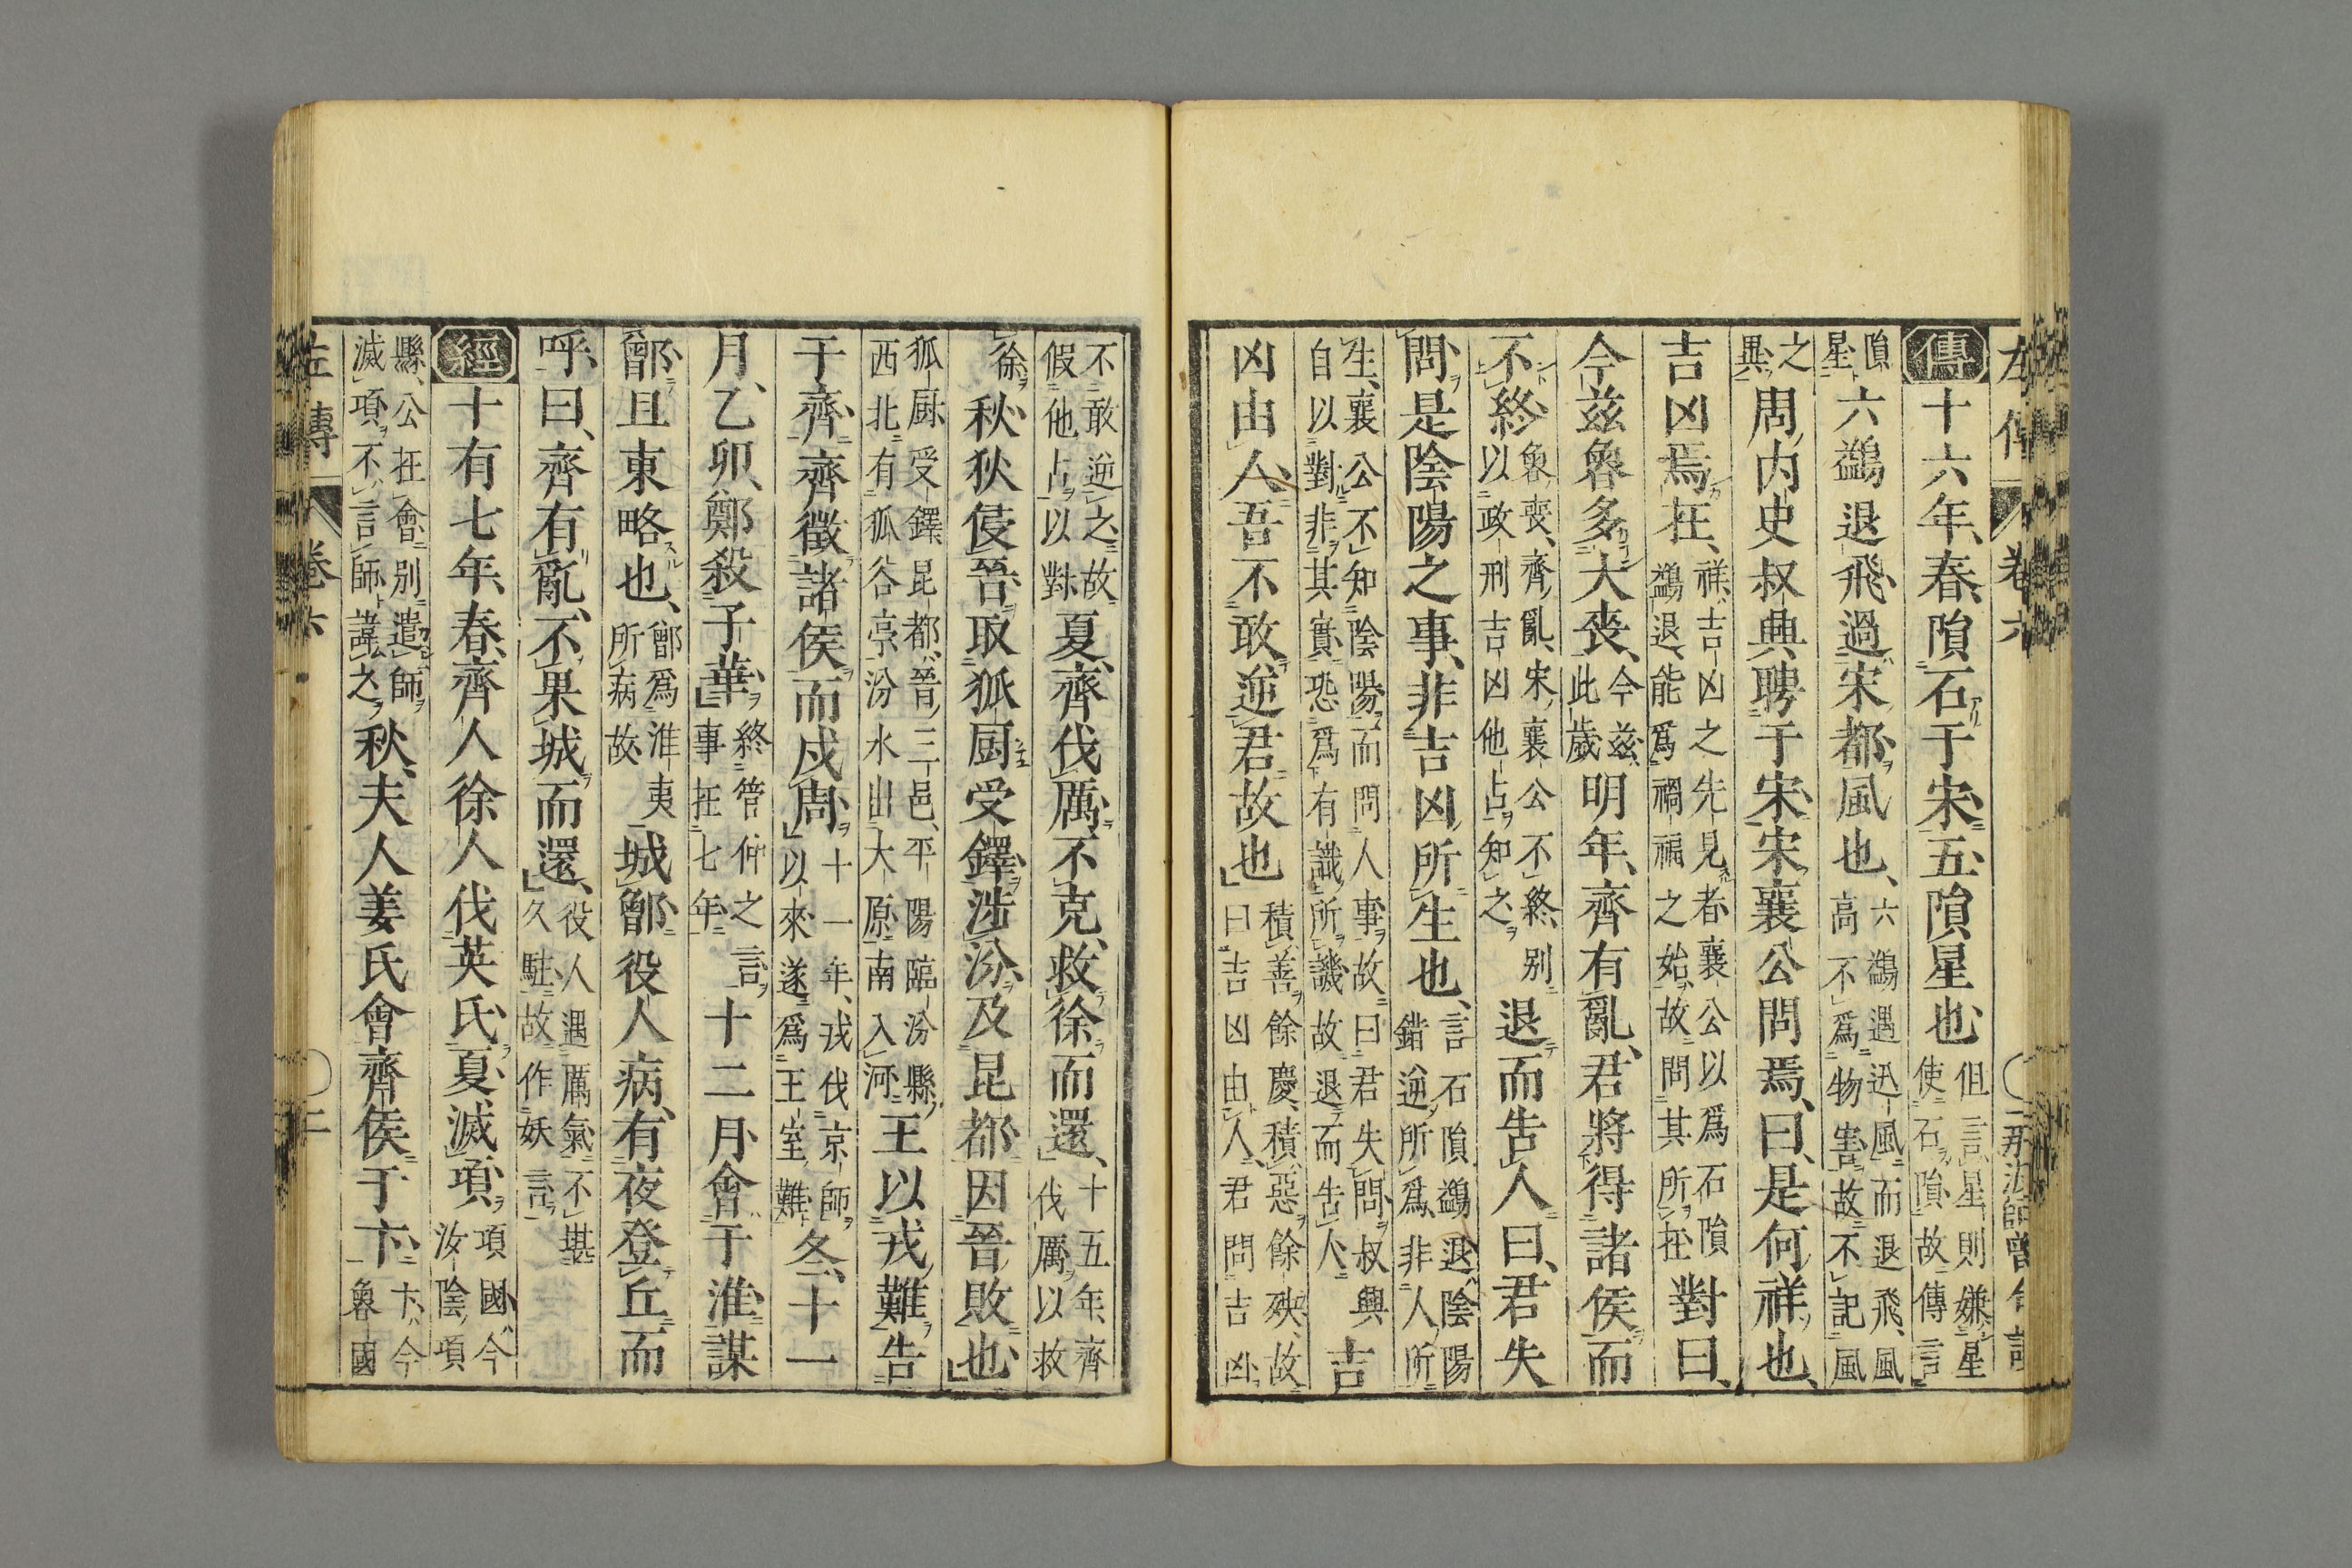 左傳 卷六
傳十六年、春、隕石于宋、五、隕星也、但言星、則嫌星使石隕、故傳言
隕星 六鷁退飛、過宋都、風也、六鷁遇迅風而退飛、風高不爲物害、故不記風
之異 周内史叔興聘于宋、宋襄公問焉、曰、是何祥也、
吉凶焉在、祥、吉凶之先見者、襄公以爲石隕鷁退、能爲禍福之始、故問其所在 對曰、
今茲魯多大喪、今茲、此歲 明年、齊有亂、君將得諸侯而
不終、魯喪、齊亂、宋襄公不終、別以政刑吉凶他占知之 退而告人曰、君失
問、是陰陽之事、非吉凶所生也、言石隕鷁退、陰陽錯逆所爲、非人所
生、襄公不知陰陽而問人事、故曰君失問、叔興自以對非其實、恐爲有識所譏、故退而告人 吉
凶由人、吾不敢逆君故也、積善餘慶、積惡餘殃、故曰吉凶由人、君問吉凶、
不敢逆之、故假他占以對 夏、齊伐厲、不克、救徐而還、十五年、齊伐厲以救
徐 秋、狄侵晉、取狐厨、受鐸、涉汾、及昆都、因晉敗也、
狐厨、受鐸、昆都、晉三邑、平陽臨汾縣西北有狐谷亭、汾水出大原、南入河 王以戎難告
于齊、齊徵諸侯而戍周、十一年、戎伐京師以來、遂爲王室難 冬、十一
月、乙卯、鄭殺子華、終管仲之言、事在七年 十二月、會于淮、謀
鄫、且東略也、鄫爲淮夷所病故 城鄫、役人病、有夜登丘而
呼、曰、齊有亂、不果城而還、役人遇厲氣、不堪久駐、故作妖言
經十有七年、春、齊人徐人伐英氏、夏、滅項、項國、今汝陰項
縣、公在會、別遣師滅項、不言師、諱之 秋、夫人姜氏會齊侯于卞、卞、今魯國
左傳 卷六